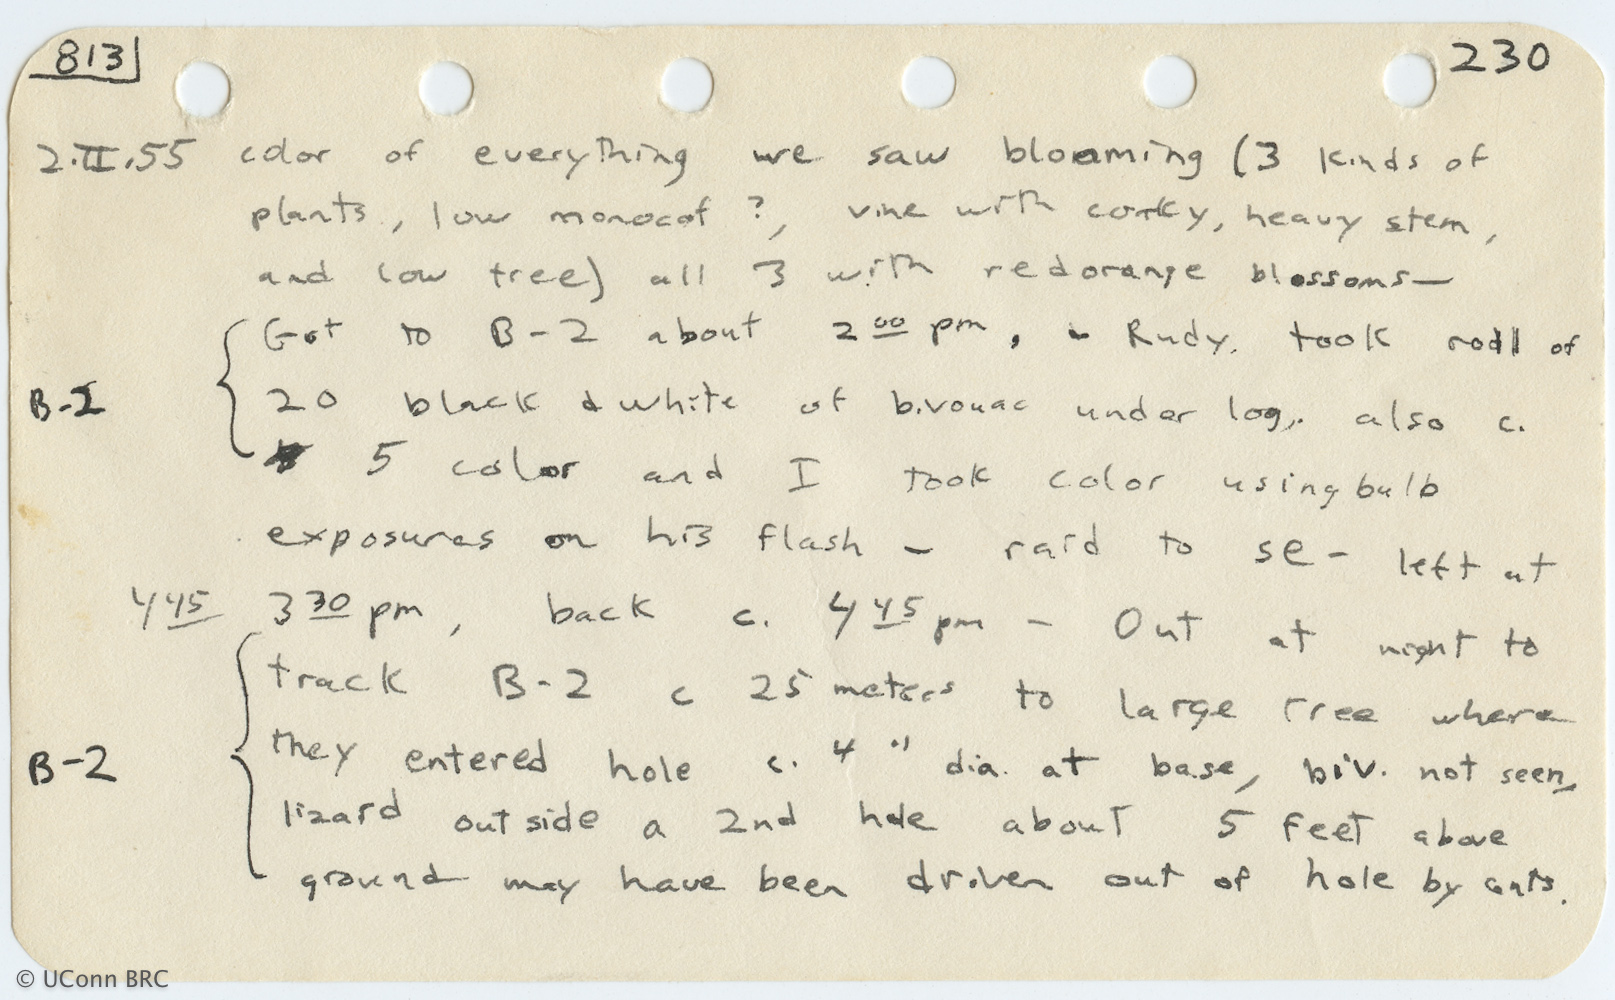 813 230
2.II.55 color of everything we saw blooming (3 kinds of
plants, low monocot?, vine with corky, heavy stem,
and low tree) all 3 with redorange blossoms—
Got to B-2 about 2 00 pm, Rudy took roll of
B-2 20 black & white of bivouac under log. also c.
5 color and I took color using bulb
exposures on his flash – raid to SE – left at
4 45 3 30 pm, back c. 4 45 pm – Out at night to
track B-2 c 25 meters to large tree where
they entered hole c. 4" dia. at base, biv. not seen,
B-2 lizard outside a 2nd hole about 5 feet above
ground may have been driven out of hole by ants.
© UConn BRC